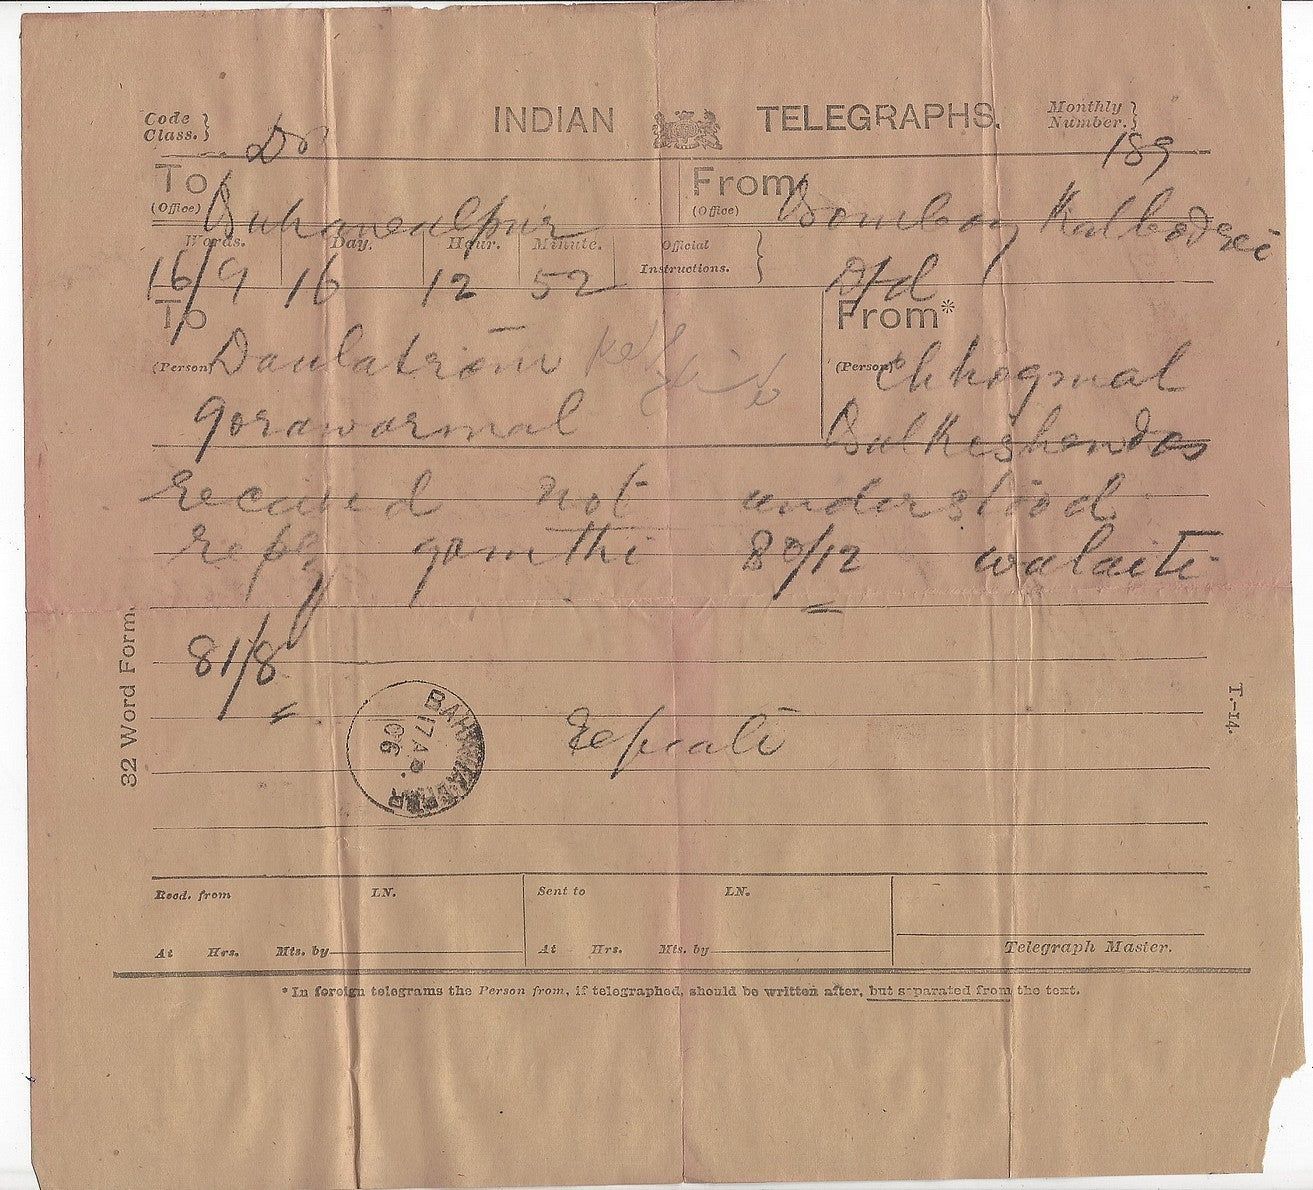 Code Class. } Do
INDIAN TELEGRAPHS.
Monthly Number. } 189
To (Office) From (Office) Bombay Kalbadevi
Words. Day. Hour. Minute. Official Instructions. }
16/9 16 12 52 D/d
To (Person) Daulatram
From* (Person) Chhogmal
gorawarmal Balkishendas
received not understood
reply gomthi 80/12 walaiti
81/8
Repeati
BAHAWALPUR
17 A
06
32 Word Form.
T.-14.
Recd. from LN. Sent to LN.
At Hrs. Mts. by At Hrs. Mts. by Telegraph Master.
* In foreign telegrams the Person from, if telegraphed, should be written after, but separated from the text.